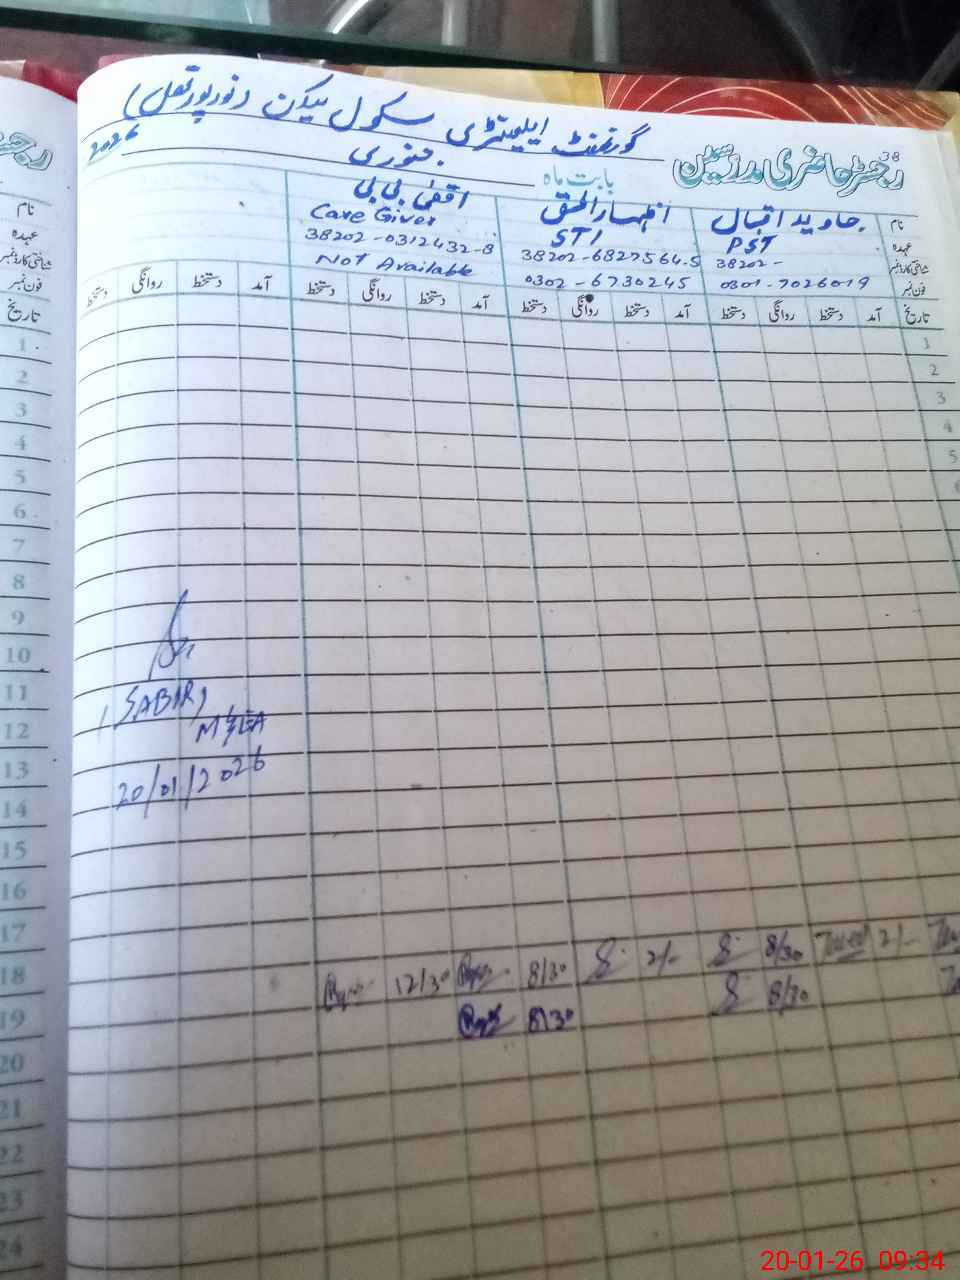 38
رجسٹر حاضری مدرسین
گورنمنٹ ایلیمنٹری سکول بیکن (نورپورتھل)
بابت ماہ جنوری 2026
نام جاوید اقبال اظہارالحق اقصٰی بی بی
عہدہ PST STI Care Giver
شناختی کارڈ نمبر 38202- 38202-6827564-5 38202-0312432-8
فون نمبر 0301-7026019 0302-6730245 Not Available
تاریخ آمد دستخط روانگی دستخط آمد دستخط روانگی دستخط آمد دستخط روانگی دستخط آمد دستخط روانگی دستخط
1
2
3
4
5
6
SABIR
MEA
20/01/2026
2/- 8/30 2/- 8/30 12/30
8/30 8/30
نام
عہدہ
شناختی کارڈ نمبر
فون نمبر
تاریخ
1
2
3
4
5
6
7
8
9
10
11
12
13
14
15
16
17
18
19
20
21
22
23
24
20-01-26 09:34